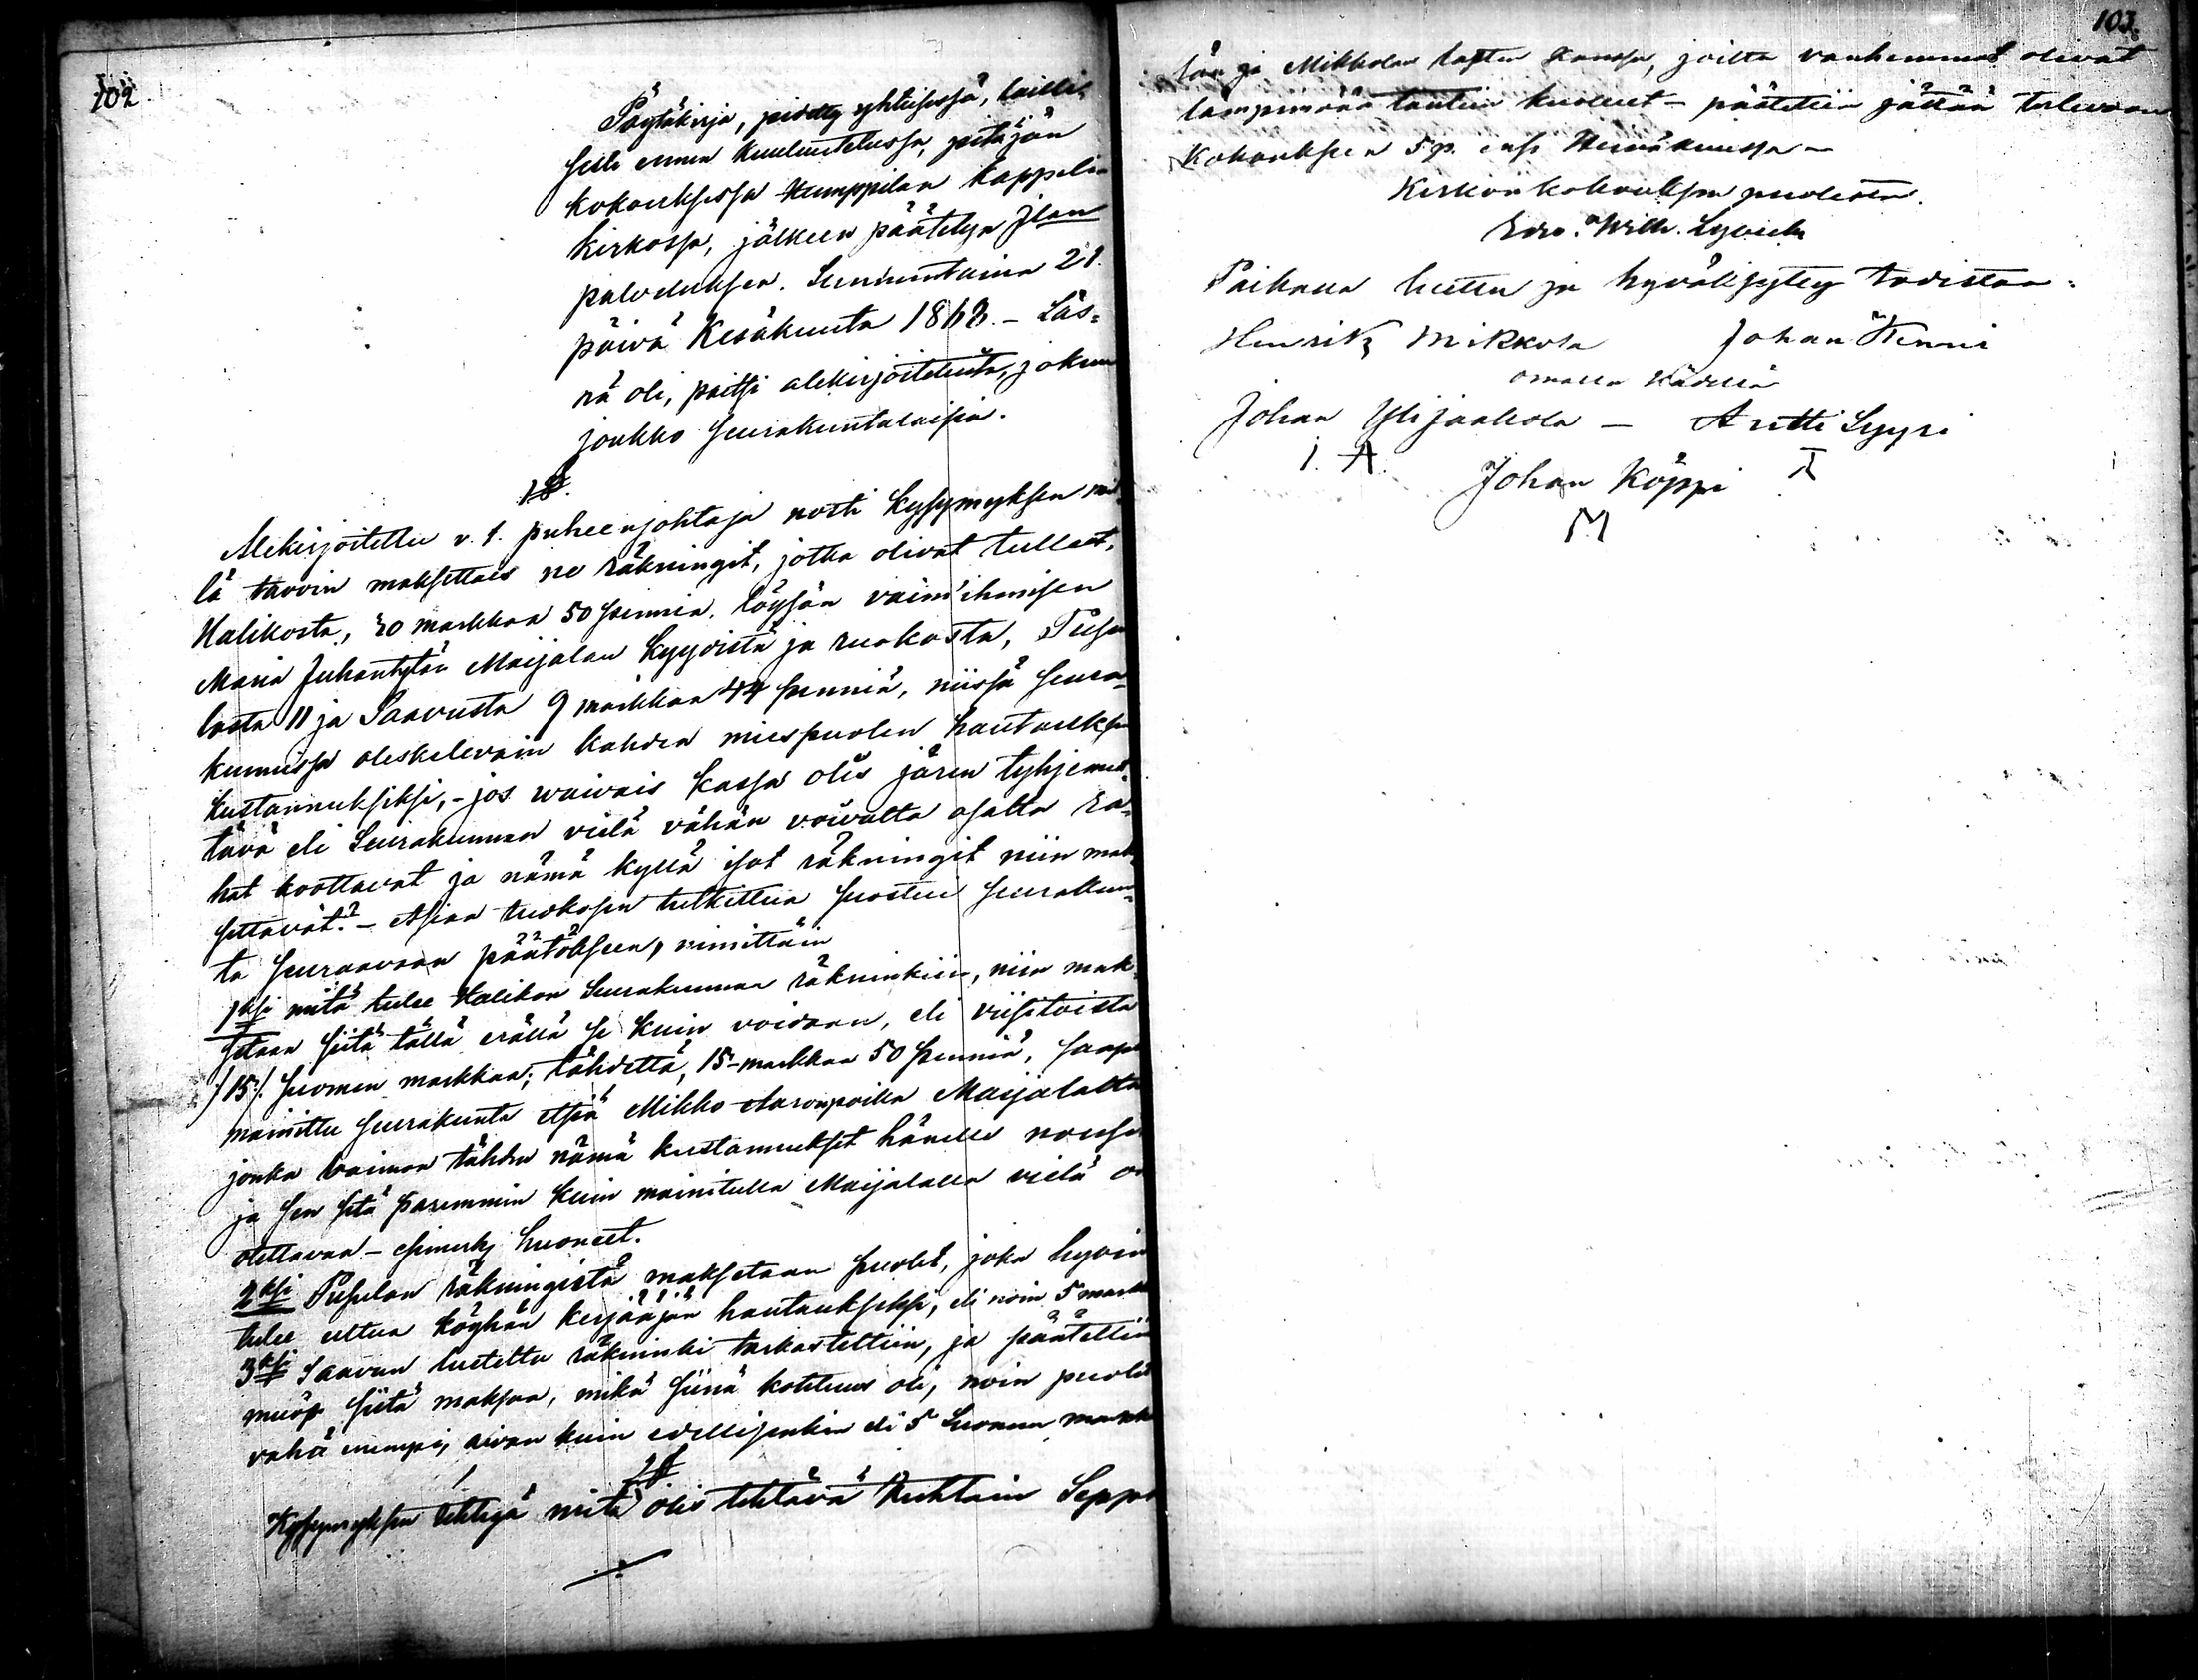 102
Pöytäkirja, pidetty yhteisessä, lailli-
sesti ennen kuulutetussa, pitäjän
kokouksessa Humppilan kappelin
kirkossa, jälkeen päätetyn Jlan
palveluksen. Sunnuntaina 21.
päivä Kesäkuuta 1868. – Läs-
nä oli, paitsi alekirjoitetuita, joku
joukko seurakuntalaisia.
1 §.
Alekirjoitettu v. t. puheenjohtaja nosti kysymyksen mil-
lä tavoin maksettais ne räkningit, jotka olivat tulleet,
Halikosta, 30 markkaa 50 penniä, löysän vaim'ihmisen
Maria Juhantytän Maijalan kyydistä ja ruokosta, Pusu-
lasta 11 ja Saavusta 9 markkaa 44 penniä, niissä seura-
kunnissa oleskelevain kahden miespuolen hautauksen
kustannuksiksi, – jos waivais kassa olis jären tyhjennet-
tävä eli Seurakunnan vielä vähän voivalta osalta ra-
hat koottavat ja nämä kyllä isot räkningit niin mak-
settavat? – Asiaa tuokosen tutkittua suostui seurakun-
ta seuraavaan päätökseen, nimittäin
1ksi mitä tulee Halikon Seurakunnan räkninkiin, niin mak-
setaan siitä tällä erällä se kuin voidaan, eli viisitoista
/:15:/ Suomen markkaa; tähdettä, 15–markkaa 50 penniä, saapi
mainittu seurakunta etsiä Mikko Aaronpoika Maijalalta
jonka vaimon tähden nämä kustannukset hänelle nousi
ja sen sitä paremmin kuin mainitulla Maijalalla vielä on
otettavaa – esimerk. huoneet.
2ksi Pusulan räkningistä maksetaan puolet, joka hyvin
tulee uttua köyhän kerjääjän hautaukseksi, eli noin 5 mark
3ksi Saavun luetettu räkninki tarkasteltiin, ja päätettiin
myös siitä maksaa, mikä siinä kohtuus oli, noin puolet
vähä enempi, aivan kuin edellisenkin eli 5 Suomen markk
2 §
Kysymyksen tehtyä mitä olis tehtävä Huhtain Seppä
103.
län ja Mikkolan lasten kanssa, joilta vanhemmat olivat
lämpimään tautiin kuolleet – päätettiin jättää tulevaan
Kokouksen 5 p. ens Heinäkuussa –
Kirkon kokouksen puolesta.
Edv. Wilh. Lyreen
Paikalla luettu ja hyväksytty todistaa:
Henrik Mikkola Johan Henni
omalla kädellä
Johan Ylijaakola – Antti Lyyri
Johan Köppi
M